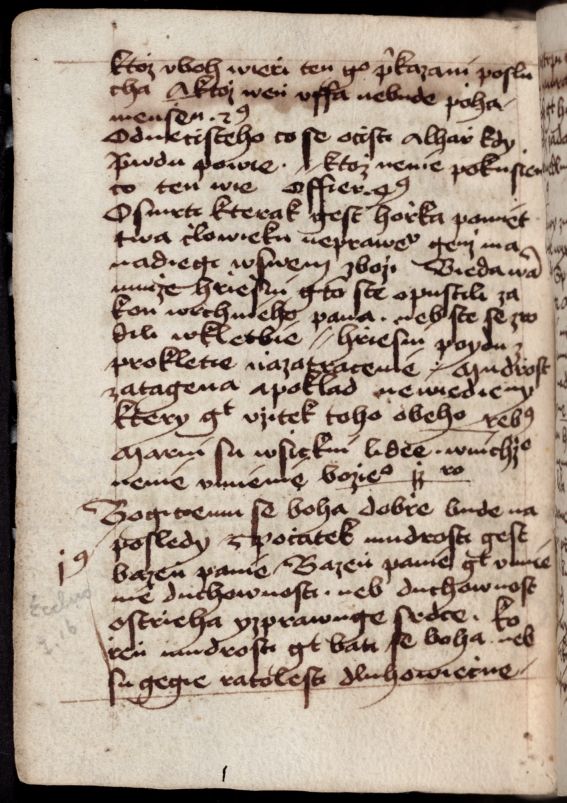 ktoz vboh wieri ten go přkazani poslu
cha Aktoz weň vffa nebude poha
menie
Odnecisteho co se ocisti Alhář kdy
prwdu powie . ktoz nenie pokusien
co ten wie Offier
Osmrti kterak gest hořka pamiet
twa člowieku neprawe genz ma
nadiegi wswem zbozi Bieda wa
muze hriesni gto ste opustili za
kon wrchnieho pana . neb ste se zro
dili wkletbie hriesni poydu z
prokletie nazatracenie Mudrost
zatagena apoklad newiedieny
ktery gt vzitek toho obeho
Marni su wsickni lidee . wnichze
nenie vmienie bozieo
Bogiciemu se boha dobře bude na
posledy Počatek mudrosti gest
bazeň panie Bazeň panie gt vmie
nie duchownosti . neb duchownost
ostrieha yzprawuge srdce . ko
řen mudrosti gt bati se boha . neb
su gegie ratolesti dluhowiecne
Ecclus
1. 16
1